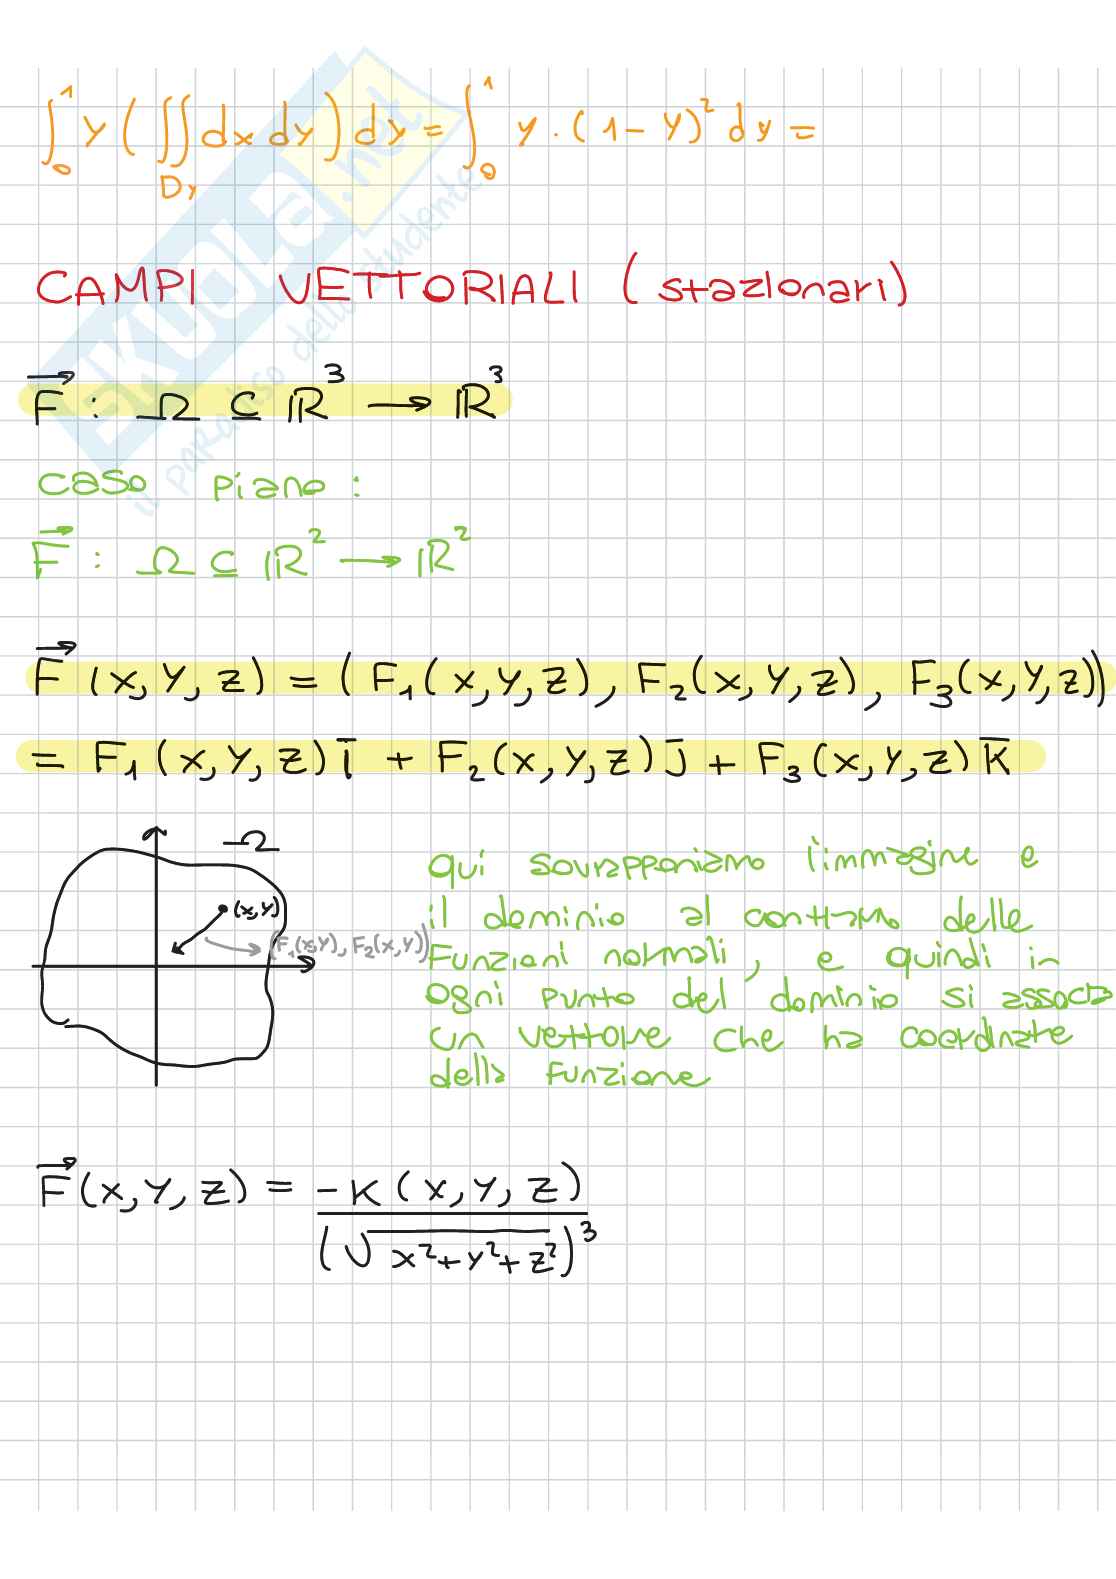 ∫₀¹ y ( ∬_{Dy} dx dy ) dy = ∫₀¹ y · (1 - y)² dy =
CAMPI VETTORIALI (stazionari)
F⃗ : Ω ⊆ ℝ³ → ℝ³
caso piano :
F⃗ : Ω ⊆ ℝ² → ℝ²
F⃗ (x, y, z) = (F₁(x, y, z), F₂(x, y, z), F₃(x, y, z))
= F₁(x, y, z) i̅ + F₂(x, y, z) j̅ + F₃(x, y, z) k̅
Ω
(x, y)
(F₁(x,y), F₂(x,y))
qui sovrapponiamo l'immagine e
il dominio al contrario delle
Funzioni normali, e quindi in
ogni punto del dominio si associa
un vettore che ha coordinate
della funzione
F⃗ (x, y, z) = -K (x, y, z) / (√(x² + y² + z²))³
SKUOLA.net
il paradiso dello studente